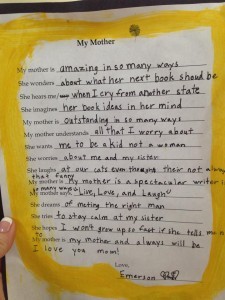 My Mother
My mother is amazing in so many ways
She wonders about what her next book should be
She hears me when I cry from another state
She imagines her book ideas in her mind
My mother is outstanding in so many ways
My mother understands all that I worry about
She wants me to be a kid not a woman
She worries about me and my sister
She laughs at our cats even though their not always
that funny
My mother is my mother is a spectacular writer in
so many ways
My mother says "Live, Love, and Laugh"
She dreams of meting the right man
She tries to stay calm at my sister
She hopes I won't grow up so fast if she tells me not
to
My mother is my mother and always will be
I love you mom!
Love,
Emerson